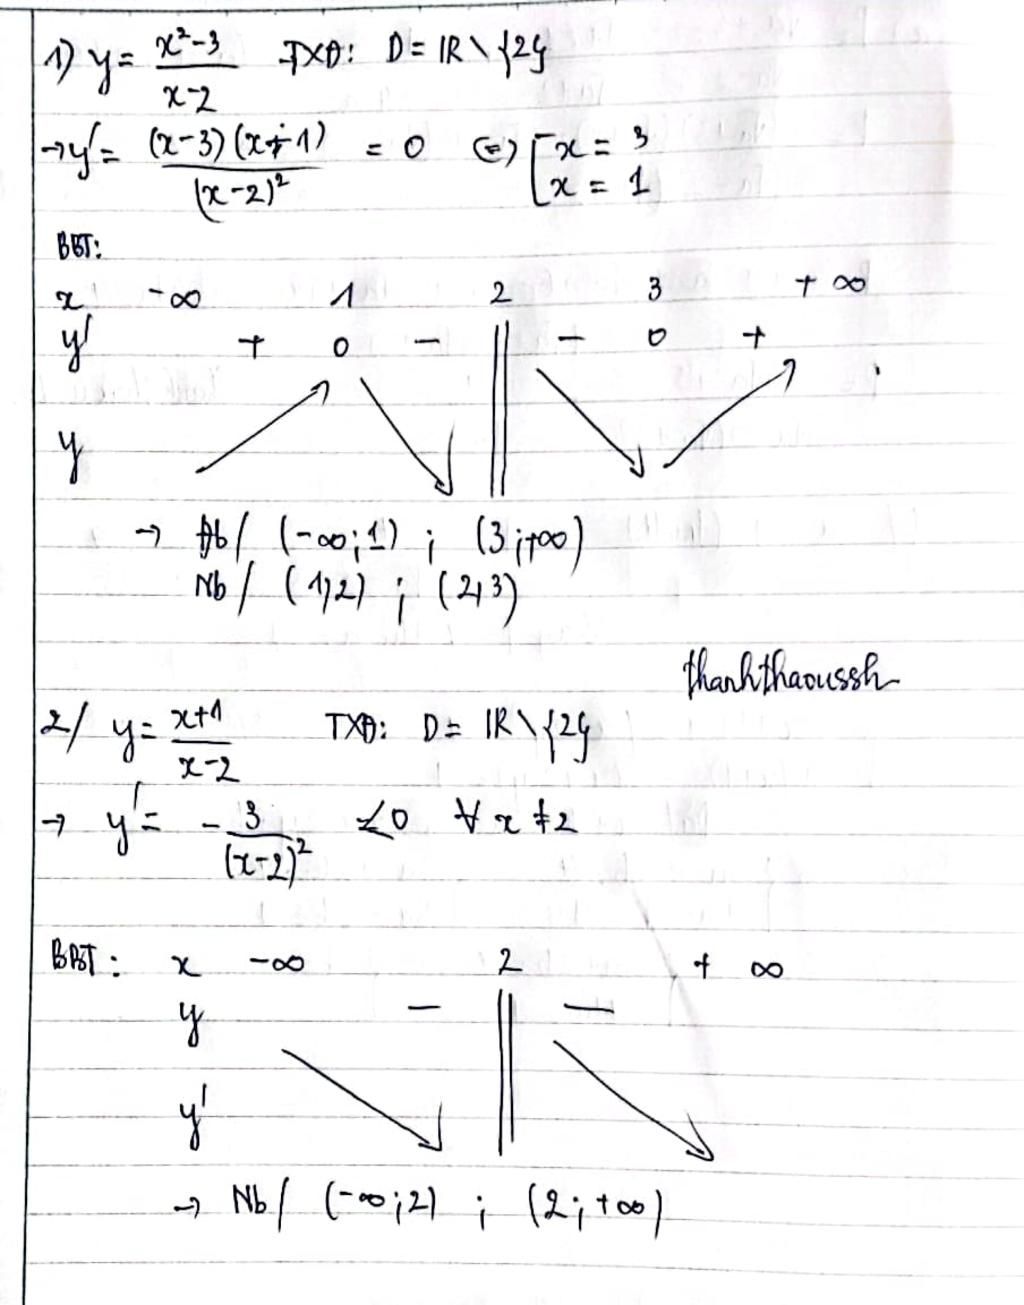 1) y = (x²-3)/(x-2) TXĐ: D = ℝ \ {2}
→ y' = (x-3)(x-1)/(x-2)² = 0 ⇔ [ x = 3
x = 1
BBT:
x -∞ 1 2 3 +∞
y' + 0 - || - 0 +
y ↗ ↘ || ↘ ↗
→ Đb / (-∞;1) ; (3;+∞)
Nb / (1;2) ; (2;3)
thanhthaoussh
2/ y = (x+1)/(x-2) TXĐ: D = ℝ \ {2}
→ y' = - 3/(x-2)² < 0 ∀ x ≠ 2
BBT: x -∞ 2 + ∞
y - || -
y' ↘ || ↘
→ Nb / (-∞;2) ; (2;+∞)